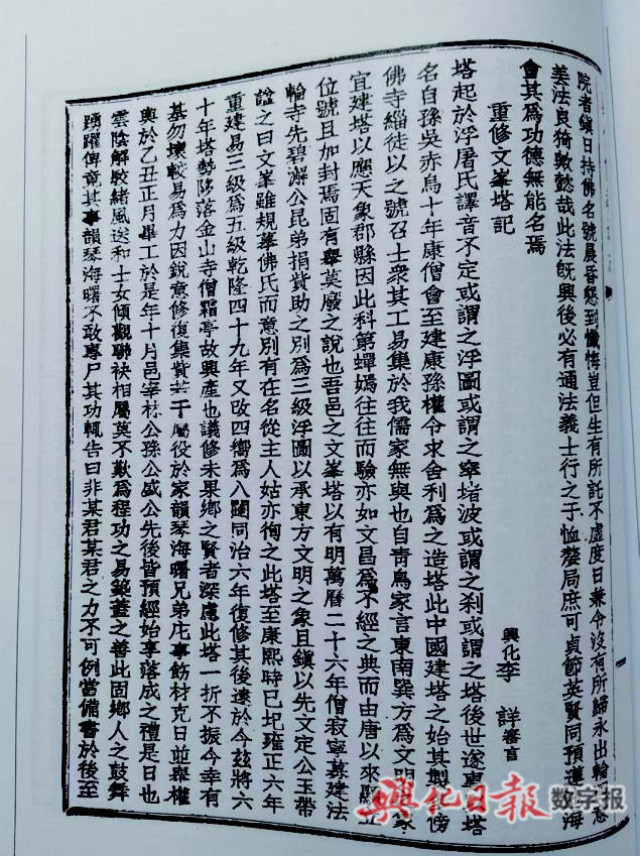 院者鎭日持佛名號晨昏懇到懺悔豈但生有所託不虛度日兼令沒有所歸永出輪
姜法良猗歟懿哉此法旣興後必有通法義士行之于恤嫠局庶可貞節英賢同預蓮海
會其爲功德無能名焉
重修文峯塔記
興化李詳審言
塔起於浮屠氏譯音不定或謂之浮圖或謂之窣堵波或謂之刹或謂之塔後世遂專曰塔
名自孫吳赤烏十年康僧會至建康孫權令求舍利爲之造塔此中國建塔之始其製傍
佛寺緇徒以之號召士衆其工易集於我儒家無與也自靑烏家言東南巽方爲文明
宜建塔以應天象郡縣因此科第蟬嫣往往而驗亦如文昌爲不經之典而由唐以來顯立
位號且加封焉固有舉莫廢之說也吾邑之文峯塔以有明萬曆二十六年僧寂寧募建法
輪寺先碧澥公昆弟捐貲助之別爲三級浮圖以承東方文明之象且鎭以先文定公玉帶
諡之曰文峯雖規摹佛氏而意別有在名從主人姑亦徇之此塔至康熙時已圮雍正六年
重建易三級爲五級乾隆四十九年又改四嚮爲八闥同治六年復修其後逮於今玆將六
十年塔勢陊落金山寺僧霜亭故興產也議修未果鄉之賢者深慮此塔一折不振今幸有
基勿壞較易爲力因銳意修復集貲若干屬役於家韻琴海曙兄弟庀事餝材克日並舉權
輿於乙丑正月畢工於是年十月邑宰林公孫公盛公先後皆預經始享落成之禮是日也
雲陰解駮緒風送和士女傾觀聯袂相屬莫不歎爲程功之易築蓋之善此固鄉人之鼓舞
踴躍俾竟其事韻琴海曙不敢專尸其功輒告曰非某君某君之力不可例當備書於後至
興化日報 数字报